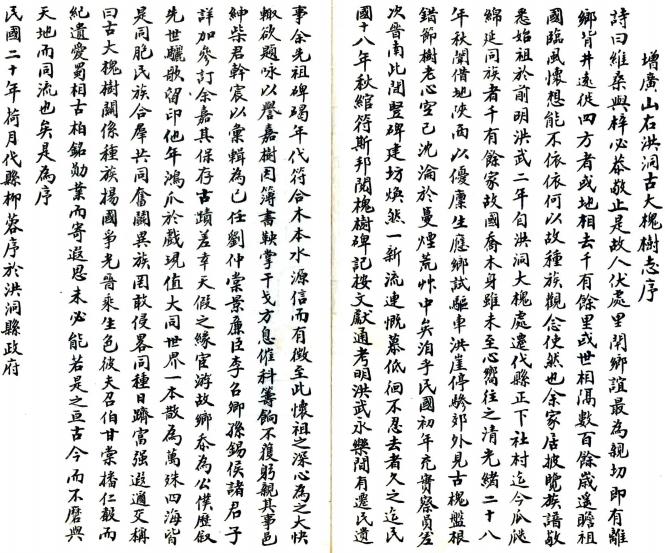 增廣山右洪洞古大槐樹志序
詩曰維桑與梓必恭敬止是故人伏處里閈鄉誼最為親切即有離
鄉背井遠徙四方者或地相去千有餘里或世相隔數百餘歲遙瞻祖
國臨風懷想能不依依何以故種族觀念使然也余家居披覽族譜敬
悉始祖於前明洪武二年自洪洞大槐處遷代縣正下社村迄今瓜瓞
綿延同族者千有餘家故國喬木身雖未至心嚮往之清光緒二十八
年秋闈借地陝西以優廩生應鄉試驅車洪崖停驂郊外見古槐盤根
錯節樹老心空已沈淪於蔓煙荒艸中矣洎乎民國初年充齊察員差
次晉南此閒豎碑建坊煥然一新流連慨慕低徊不忍去者久之迄民
國十八年秋綰符斯邦閱槐樹碑記按文獻通考明洪武永樂間有遷民遺
事余先祖碑碣年代符合木本水源信而有徵至此懷祖之深心為之大快
輙欲題咏以譽嘉樹因簿書鞅掌干戈方息催科籌餉不獲躬親其事邑
紳柴君幹宸以彙輯為己任劉仲棠景廉臣李召卿孫錫侯諸君子
詳加參訂余嘉其保存古蹟差幸天假之緣宦游故鄉忝為公僕歷叙
先世驪歌留印他年鴻爪於戲現值大同世界一本散為萬殊四海皆
是同胞民族合群共同奮鬭異族罔敢侵畧同種日躋富强遐邇交稱
曰古大槐樹關係種族揚國爭光晉乘生色彼夫召伯甘棠播仁聲而
紀遺愛蜀相古柏銘勛業而寄遐思未必能若是之亘古今而不磨與
天地而同流也矣是為序
民國二十年荷月代縣柳蓉序於洪洞縣政府